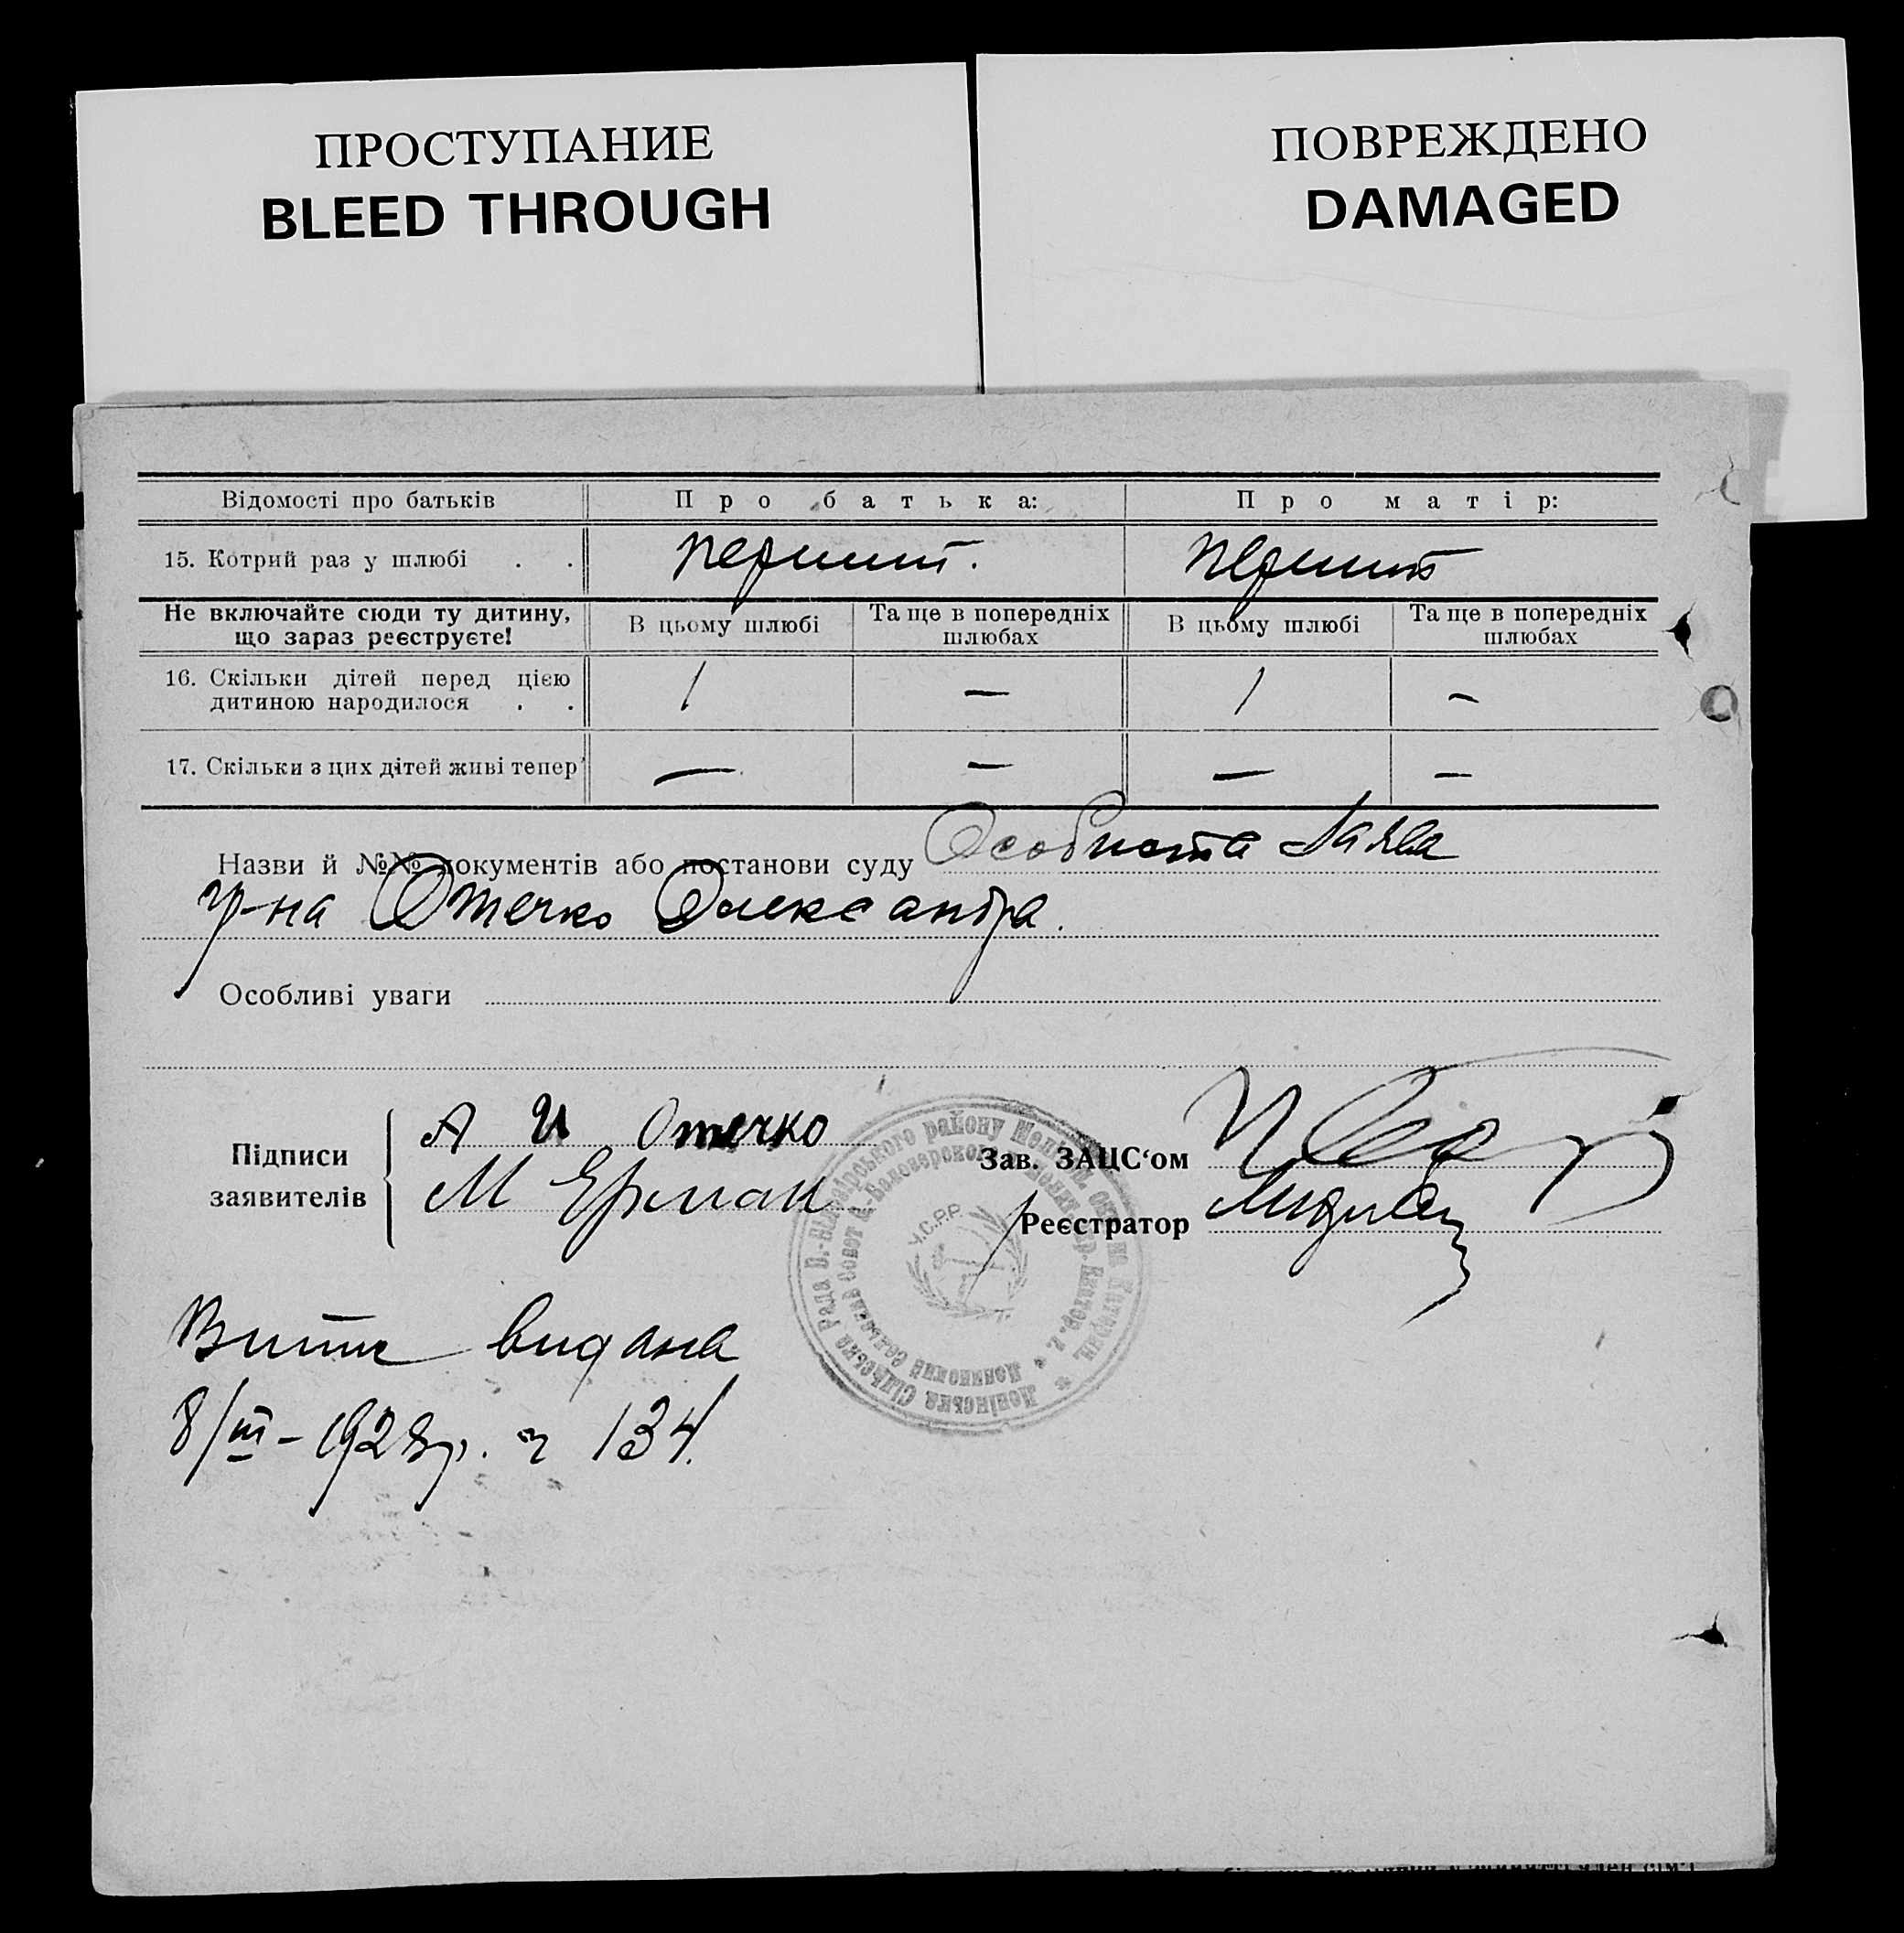 ПРОСТУПАНИЕ
BLEED THROUGH
ПОВРЕЖДЕНО
DAMAGED
Відомості про батьків Про батька: Про матір:
15. Котрий раз у шлюбі . . перший. перший
Не включайте сюди ту дитину, що зараз реєструєте! В цьому шлюбі Та ще в попередніх шлюбах В цьому шлюбі Та ще в попередніх шлюбах
16. Скільки дітей перед цією
дитиною народилося . . 1 — 1 —
17. Скільки з цих дітей живі тепер — — — —
Назви й №№ документів або постанови суду Особиста заява
гр-на Отечко Олександра.
Особливі уваги
Підписи заявителів
А И Отечко
М Ерман
Зав. ЗАЦС‘ом
Реєстратор
У.С.Р.Р.
Витяг видана
8/III – 1928р. ч 134.